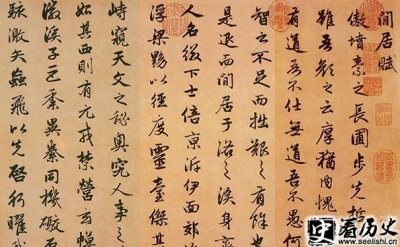 閒居賦
傲墳素之長圃步先哲
雖吾顏之云厚猶內愧
有道吾不仕無道吾不愚何
智之不足而拙艱之有餘也
是退而閒居于洛之涘身
人名綴下士倍京泝伊面郊
浮梁黝以經度靈臺傑其
峙窺天文之秘奧究人事之
如其西則有元戎禁營玄幙
溪子巨黍異絭同機礮
駭激矢蝱飛以先啓行曜
看历史
www.seelishi.cn